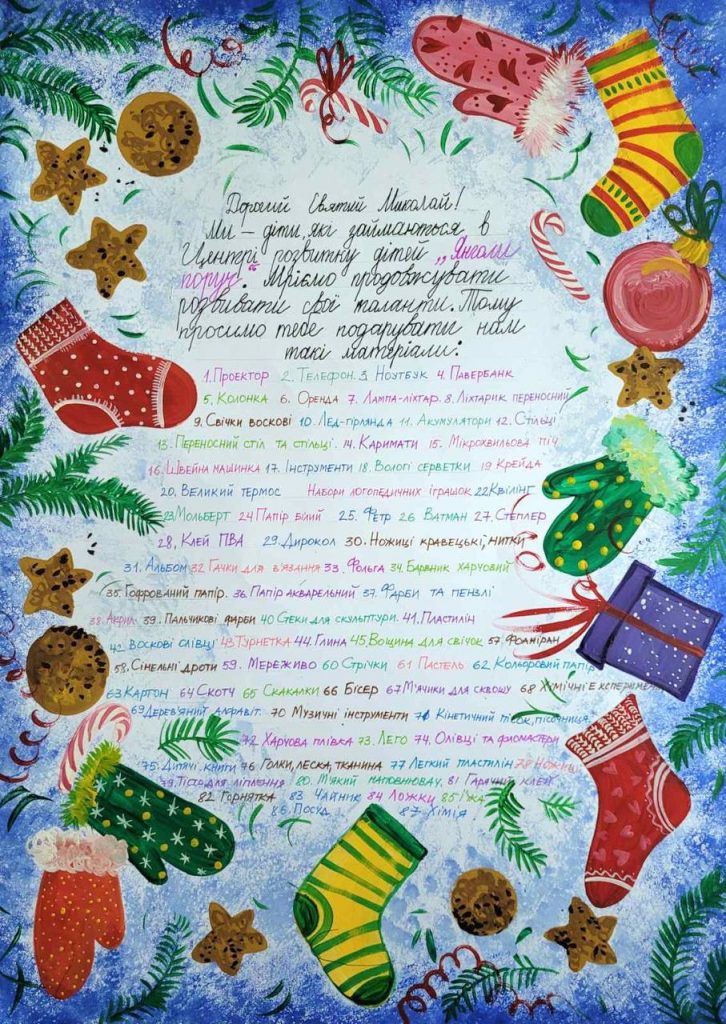 Дорогий Святий Миколай!
Ми – діти, які займаються в
Центрі розвитку дітей „Янголи
поруч". Мріємо продовжувати
розвивати свої таланти. Тому
просимо тебе подарувати нам
такі матеріали:
1. Проектор 2. Телефон. 3. Ноутбук 4. Павербанк
5. Колонка 6. Оренда 7. Лампа-ліхтар. 8. Ліхтарик переносний
9. Свічки воскові 10. Лед-гірлянда 11. Акумулятори 12. Стільці
13. Переносний стіл та стільці. 14. Каримати 15. Мікрохвильова піч
16. Швейна машинка 17. Інструменти 18. Вологі серветки 19 Крейда
20. Великий термос Набори логопедичних іграшок 22 Квілінг
23 Мольберт 24 Папір білий 25. Фетр 26 Ватман 27. Степлер
28, Клей ПВА 29. Дирокол 30. Ножиці кравецькі, нитки
31. Альбом 32 Гачки для в'язання 33. Фольга 34. Барвник харчовий
35. Гофрований папір. 36. Папір акварельний 37. Фарби та пензлі
38. Акрил. 39. Пальчикові фарби 40 Стеки для скульптури. 41. Пластилін
42. Воскові олівці 43 Турнетка 44. Глина 45 Вощина для свічок 57 Фоаміран
58. Сінельні дроти 59. Мереживо 60 Стрічки 61 Пастель 62 Кольоровий папір
63 Картон 64 Скотч 65 Скакалки 66 Бісер 67 М'ячики для сквошу 68 Хімічні Експерименти
69 Дерев'яний алфавіт. 70 Музичні інструменти 71 Кінетичний пісок, пісочниця
72. Харчова плівка 73. Лего 74. Олівці та фломастери
75. Дитячі книги 76 Голки, леска, тканина 77 Легкий пластилін 78 Ножиці
79. Тісто для ліплення 80. М'який наповнювач. 81 Гарячий клей
82 Горнятка 83 Чайник 84 Ложки 85 Їжа
86. Посуд 87 Хімія